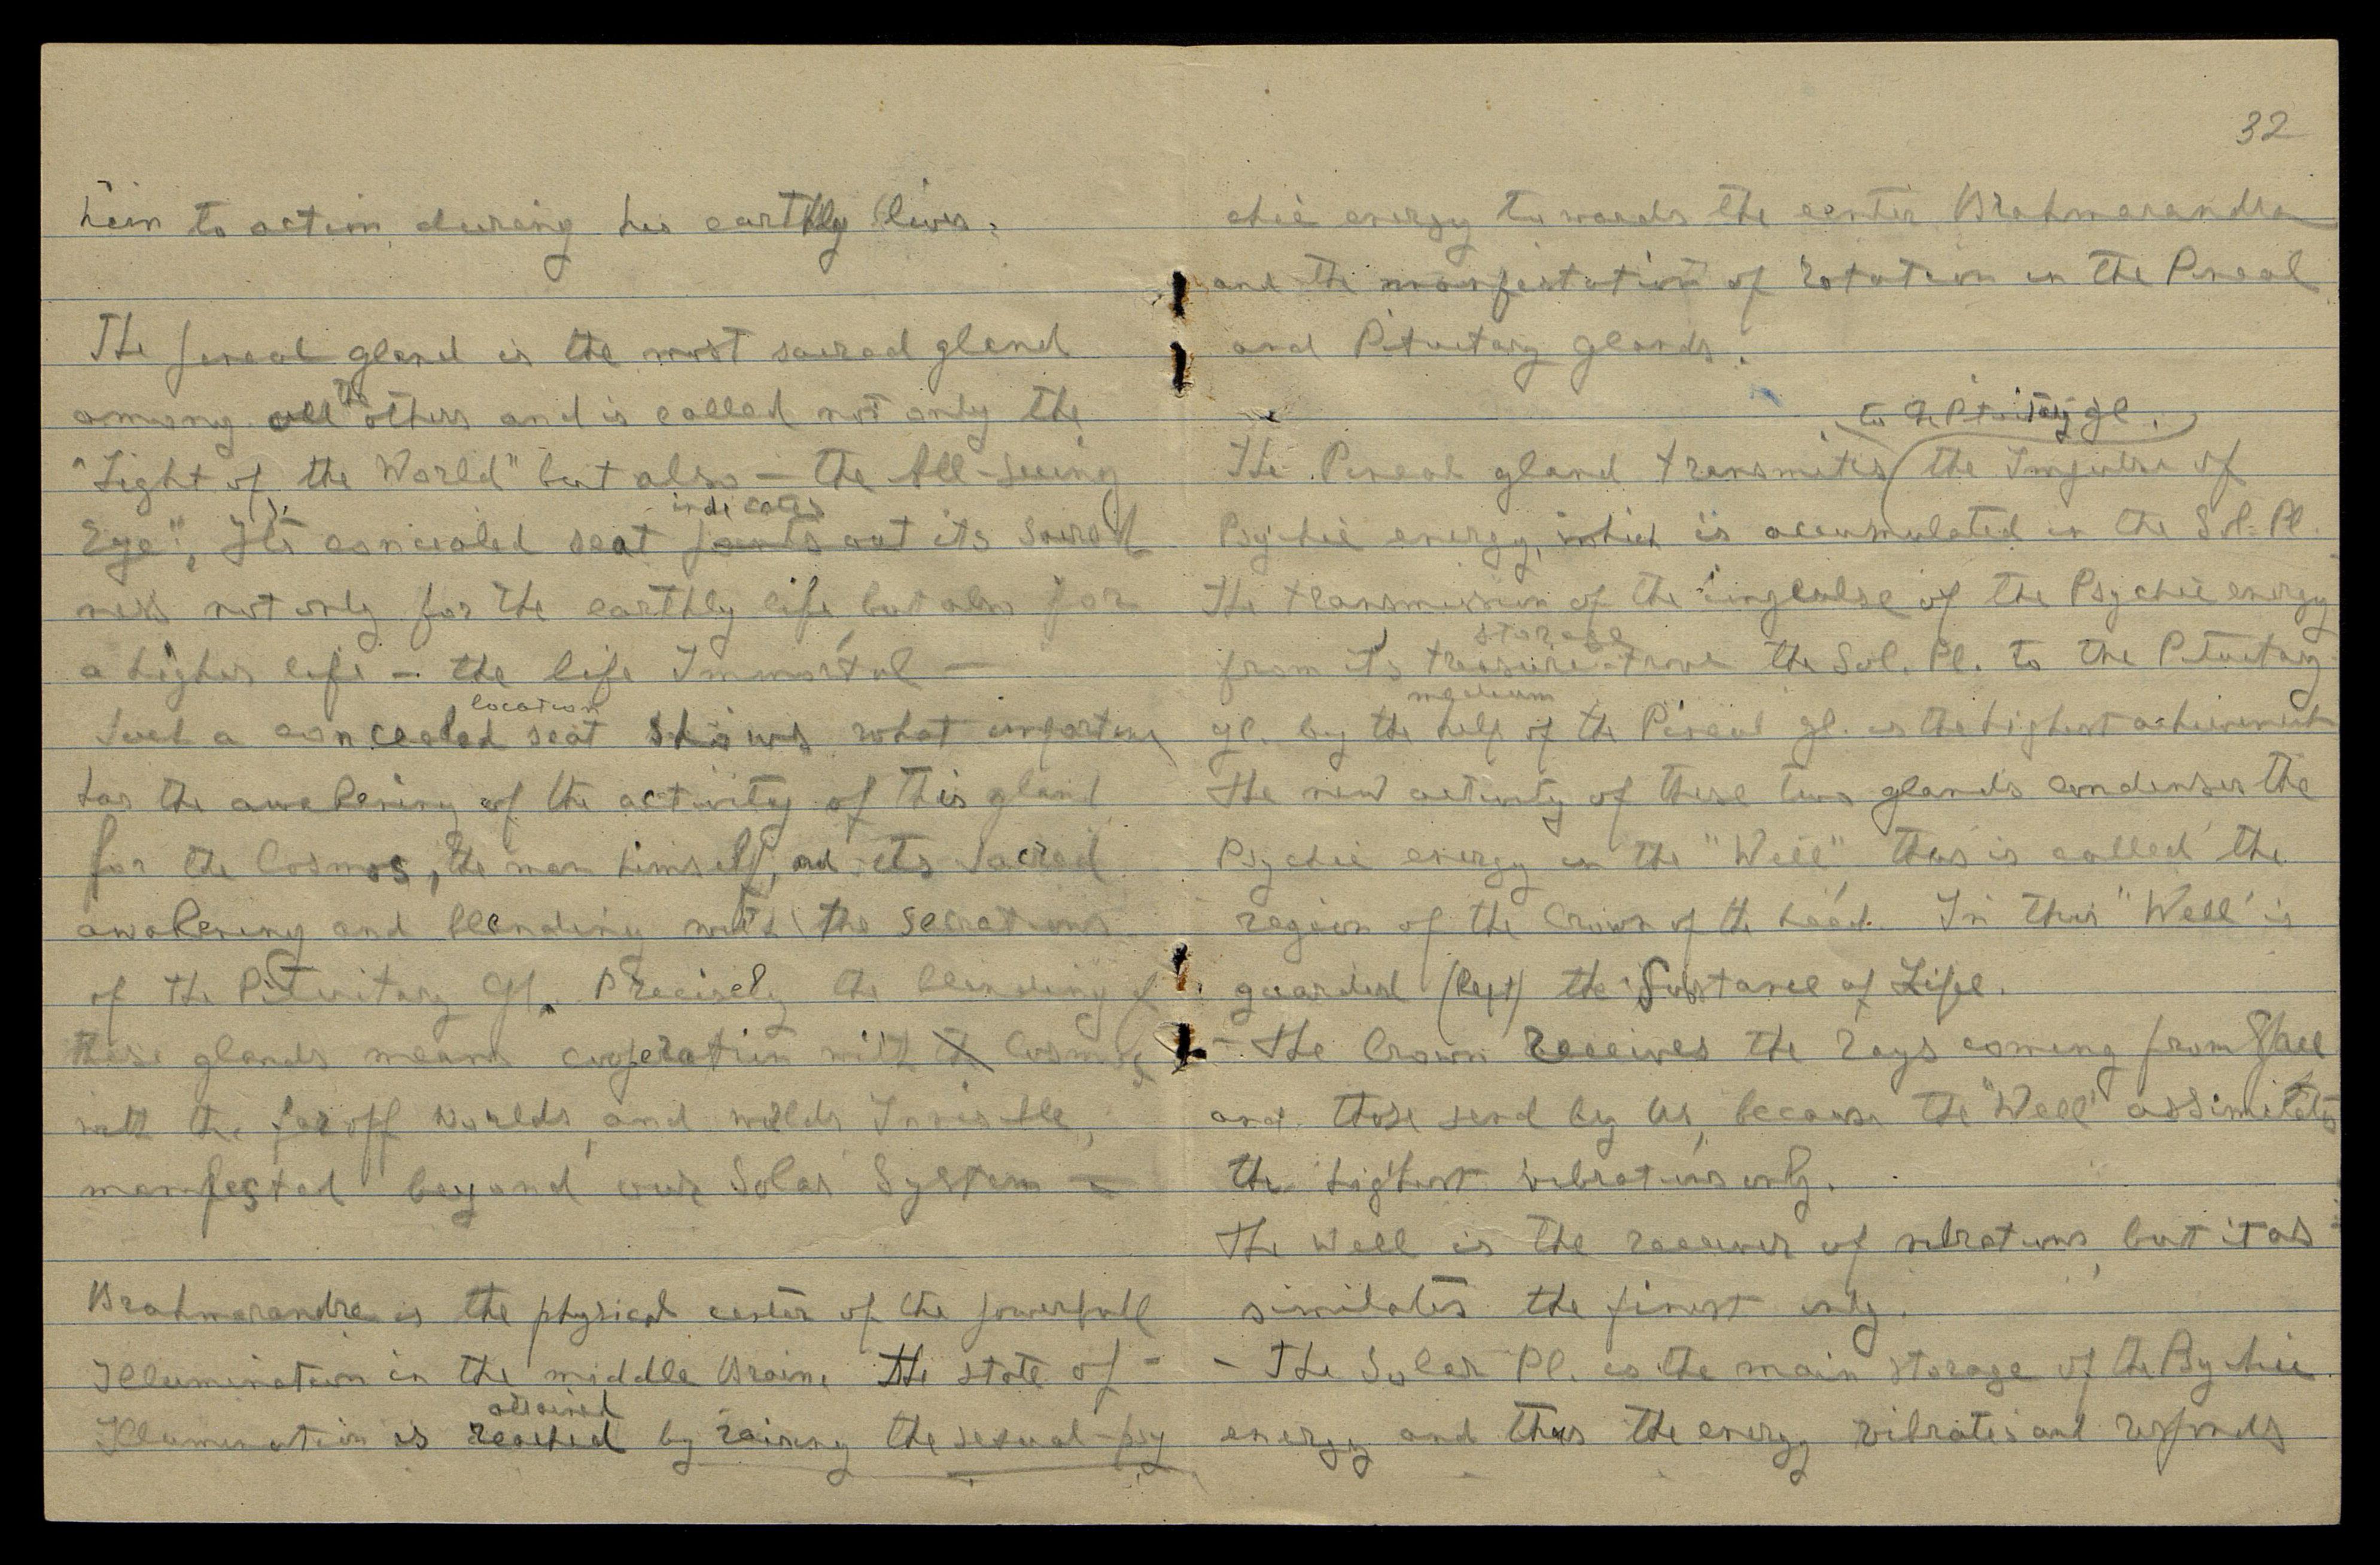 him to action during his earthly lives.
The pineal gland is the most sacred gland
among all the others and is called not only the
"Light of the World" but also — the All-seeing
indicates
Eye". Its concealed seat points out its sacred
ness not only for the earthly life, but also for
a higher life — the life Immortal —
location
Such a concealed seat shows what importance
has the awakening of the activity of this gland
for the Cosmos, the man himself, and its sacred
awakening and blending with the secretions
of the Pituitary Gl. Precisely the blending of
these glands means cooperation with Cosmos,
with the far off worlds, and worlds Invisible,
manifested beyond our Solar System —
Brahmarandra is the physical center of the powerfull
Illumination in the middle Brain. The state of -
attained
Illumination is reached by raising the sexual-psy
32
chic energy towards the center Brahmarandra
and the manifestation of rotation in the Pineal
and Pituitary glands.
to the Pituitary gl.
The Pineal gland transmites the Impulse of
Psychic energy, which is accumulated in the Sol. Pl.
The transmission of the impulse of the Psychic energy
storage
from its treasure-trove the Sol. Pl. to the Pituitary
medium
gl. by the help of the Pineal gl. is the highest achievement
The new activity of these two glands condenses the
Psychic energy in the "Well", thus is called the
region of the Crown of the head. In this "Well" is
guarded (kept) the Substance of Life.
- The Crown receives the rays coming from Space
and those send by Us, because the "Well" assimilates
the highest vibrations only.
The Well is the receiver of vibrations, but it as-
similates the finest only.
- The Solar Pl. is the main storage of the Psychic
energy and thus the energy vibrates and responds